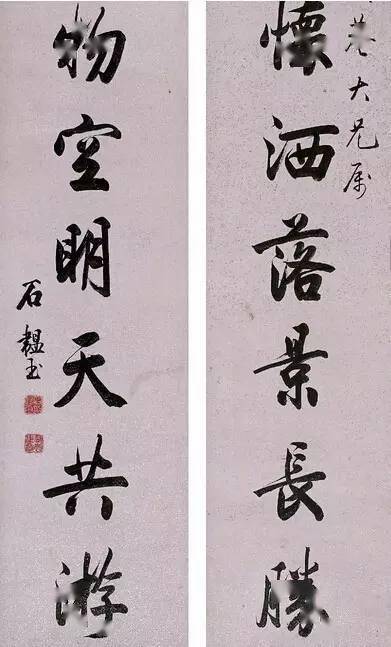 大兄属
懷洒落景長勝
物空明天共游
石韞玉